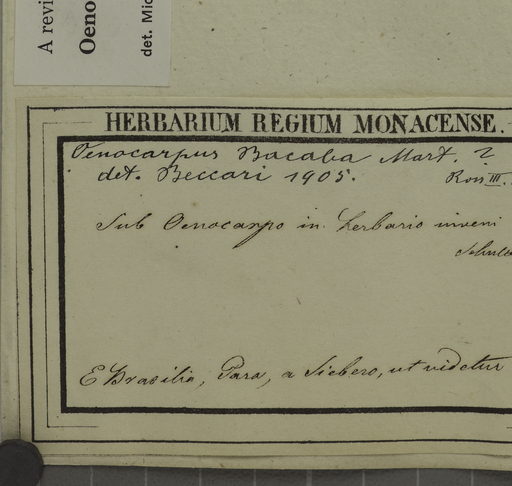 A revi
Oeno
det. Mic
HERBARIUM REGIUM MONACENSE.
Oenocarpus Bacaba Mart. ?
det. Beccari 1905.
III.
Sub Oenocarpo in herbario inveni
E Brasilia, Para, a Siebero, ut videtur